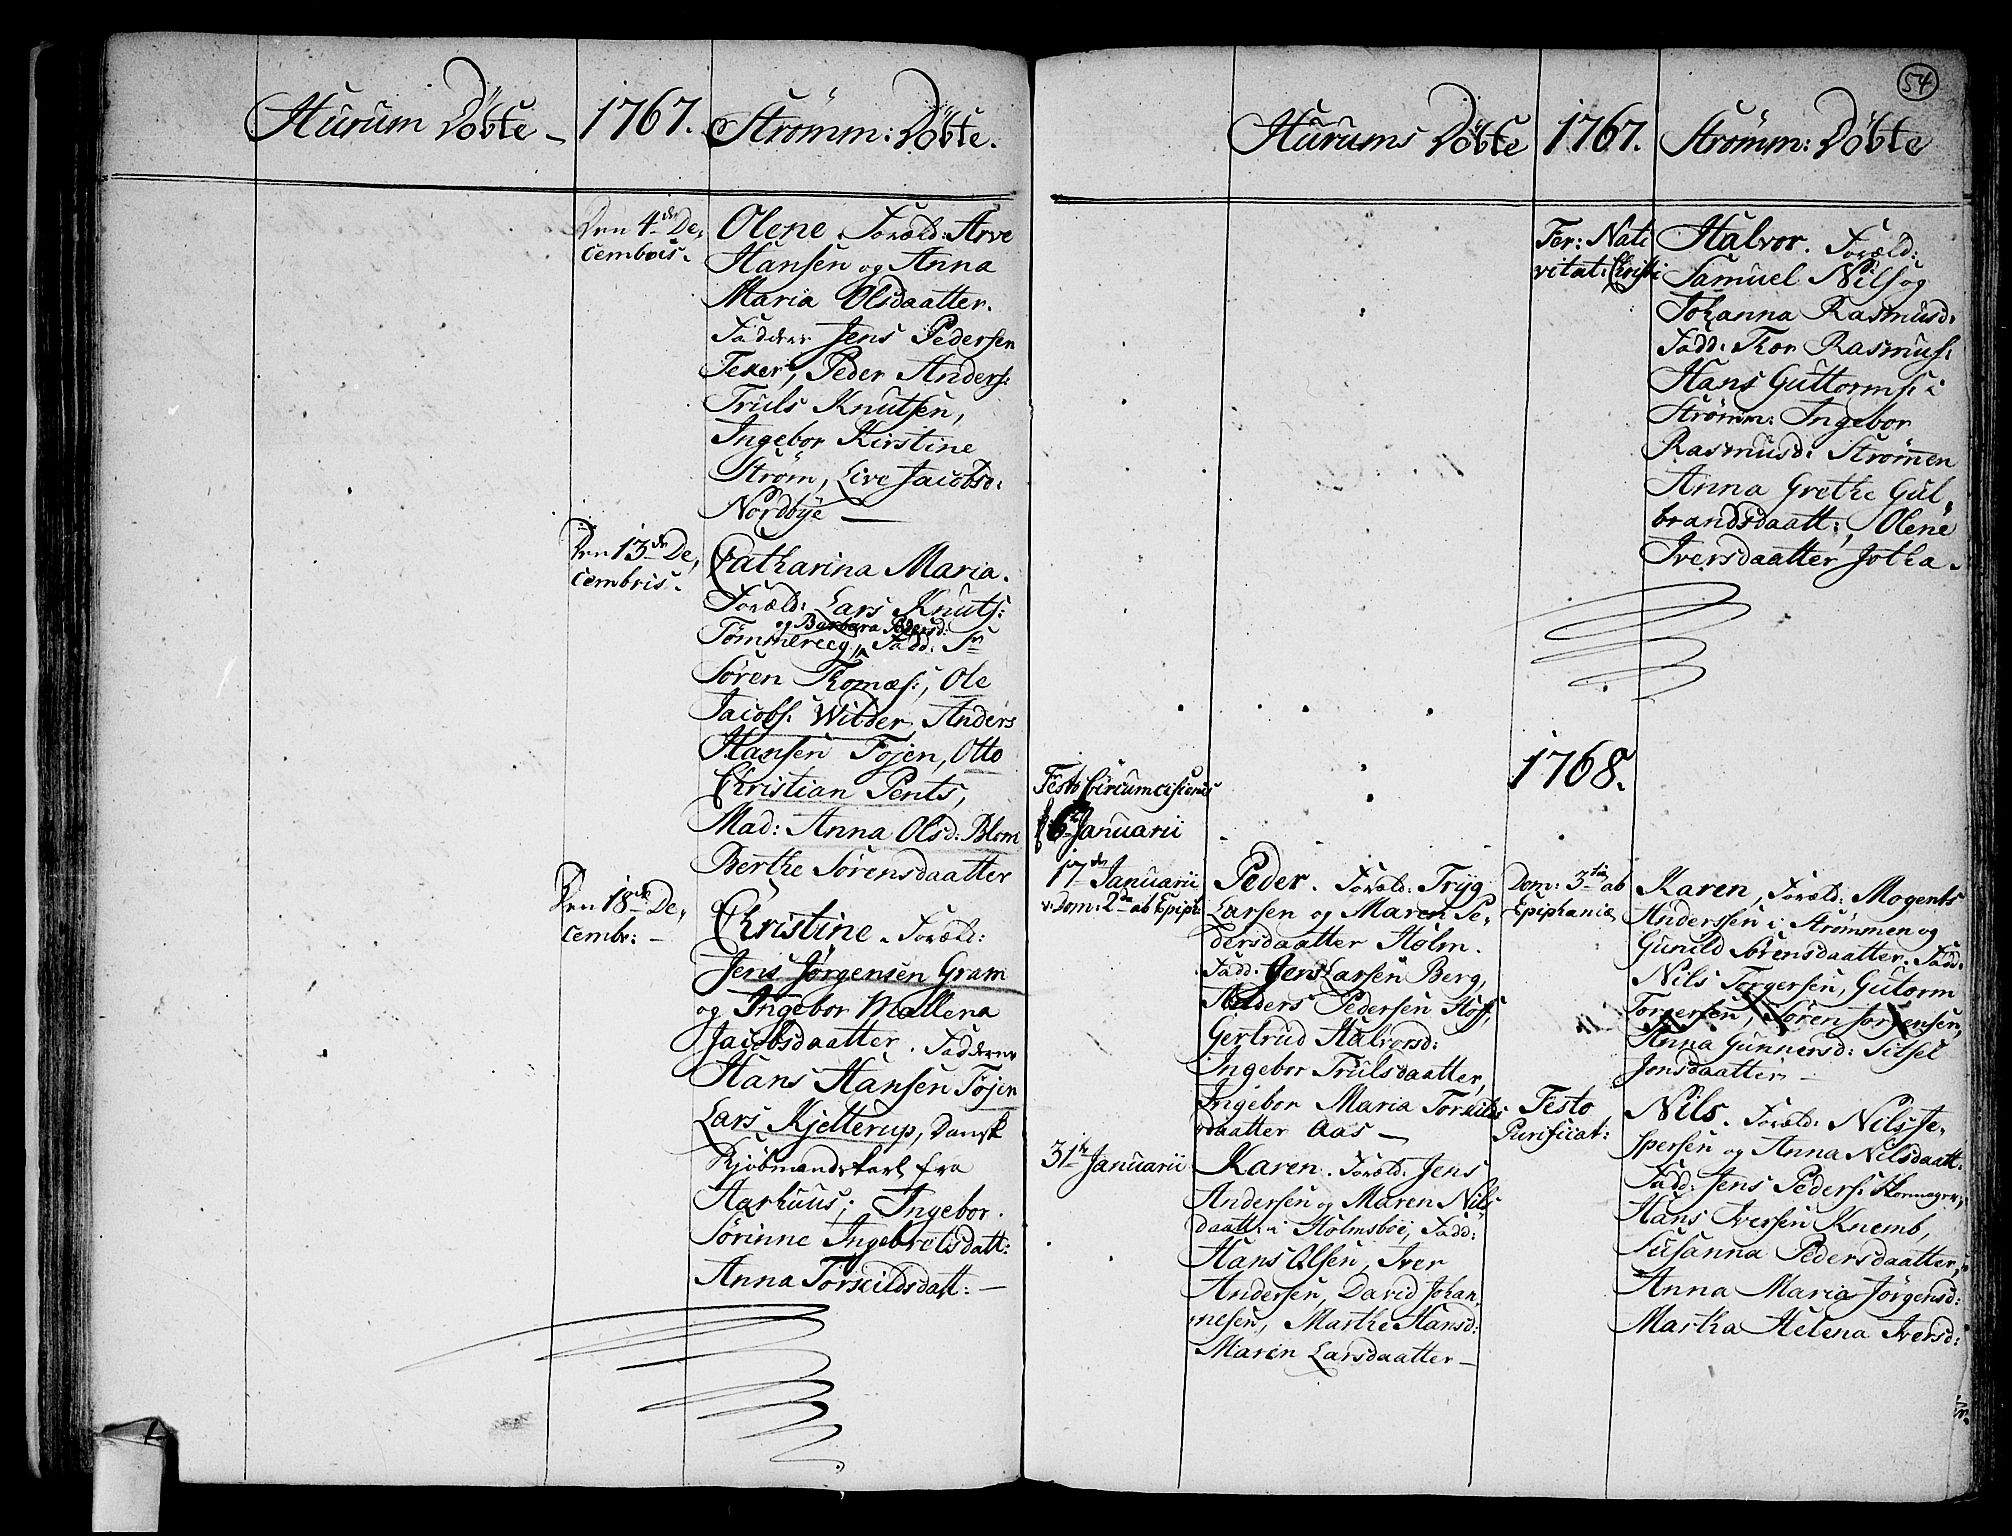 Hurum Döbte – 1767. Strømm: Döbte.
Den 4de De,
cembris.
Olene. Foræld: Arve
Hansen og Anna
Maria Olsdaatter.
Fadderer Jens Pedersen
Peder Anders:
Truls Knutsen,
Ingebor Kirstine
Strøm, Live Jacobsd:
Nordbye —
Den 13de De,
cembris.
Catharina Maria.
Foræld: Lars Knuts:
og Barbara Pedersd:
Tømmeraeg, Fadd: Sr
Sören Thomæs:, Ole
Jacobs: Wilder, Anders
Hansen Föjen, Otto
Christian Pents,
Mad: Anna Olsd: Blom
Berthe Sörensdaatter
Den 18de De,
cembr: –
Christine. Foræld:
Jens Jörgensen Gram
og Ingebor Mallena
Jacobsdaatter. Fadderne
Hans Hansen Föjen
Lars Kjelterup, Dansk
Kjöbmandskarl fra
Aarhuus; Ingebor.
Sörinne Ingebretsdatt:
Anna Torskildsdatt: —
54
Hurums Döbte 1767. Strømm: Döbte
Fer: Nati
vitat: Christi
Halvor. Foræld:
Samuel Nils og
Johanna Rasmusd:
Fadd: Thor Rasmus:
Hans Guttorms: i
Strømm: Ingebor
Rasmusd: Strømen
Anna Grethe Gul,
brandsdaatt:, Olene
Iversdaatter Jotha.
1768.
Festo Circumcisionis
6te Januarii
17de Januarii
v: Dom: 2da ab Epiph:
Peder. Foræld: Tryg
Larsen og Maren Pe,
dersdaatter Holm.
Fadd: Jens Larsen Berg,
Anders Pedersen Hoff,
Gertrud Halvorsd:
Ingebor Trulsdaatter,
Ingebor Maria Torkilds
daatter Aas —
31te Januarii
Karen. Foræld: Jens
Andersen og Maren Nils
daatt: i Holmsboe, Fadd:
Hans Olsen, Iver
Andersen, David Johan,
nesen, Marthe Hansd:
Maren Larsdaatter —
Dom: 3tia ab
Epiphaniæ
Karen, Foræld: Mogents
Anderssen i Strømmen og
Gunild Sörensdaatter. Fadd:
Nils Torgersen, Gutorm
Torgersen, Sören Torgensen,
Anna Gunnersd: Sitsel
Jonsdaatter —
Festo
Purificat:
Nils. Foræld: Nils Je,
spersen og Anna Nilsdaatt:
Fadd: Jens Peders: Skomager,
Hans Iversen Knemb,
Susanna Pedersdaatter,
Anna Maria Jörgensd:
Martha Helena Iversd: